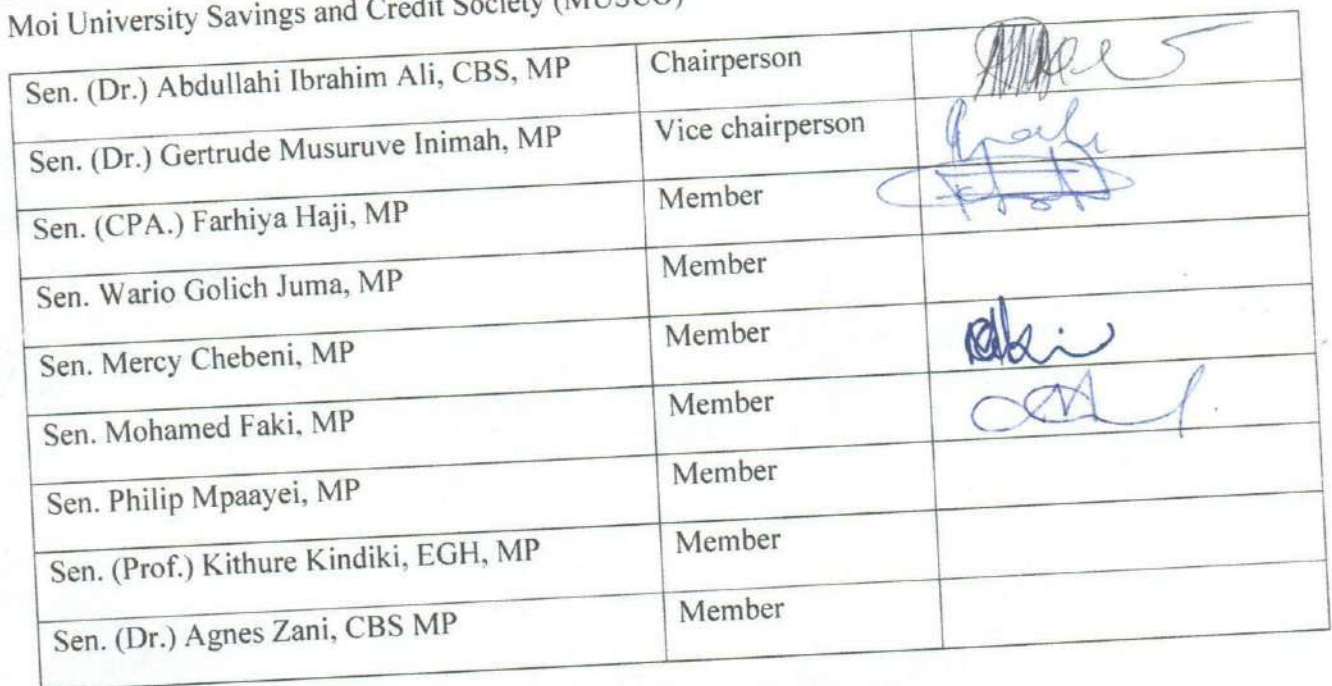 Moi University Savings and Credit Society (MUSCO)
Sen. (Dr.) Abdullahi Ibrahim Ali, CBS, MP Chairperson
Sen. (Dr.) Gertrude Musuruve Inimah, MP Vice chairperson
Sen. (CPA.) Farhiya Haji, MP Member
Sen. Wario Golich Juma, MP Member
Sen. Mercy Chebeni, MP Member
Sen. Mohamed Faki, MP Member
Sen. Philip Mpaayei, MP Member
Sen. (Prof.) Kithure Kindiki, EGH, MP Member
Sen. (Dr.) Agnes Zani, CBS MP Member